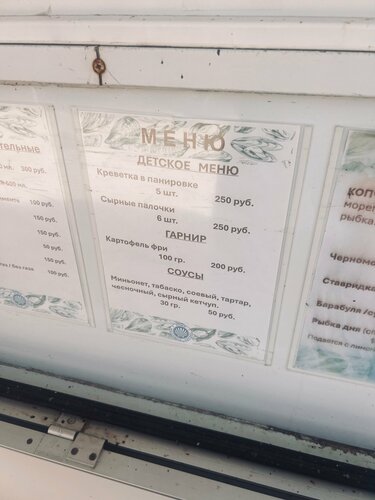 МЕНЮ
ДЕТСКОЕ МЕНЮ
Креветка в панировке
5 шт. 250 руб.
Сырные палочки
6 шт. 250 руб.
ГАРНИР
Картофель фри
100 гр. 200 руб.
СОУСЫ
Миньонет, табаско, соевый, тартар,
чесночный, сырный кетчуп.
30 гр. 50 руб.
300 руб.
100 руб.
150 руб.
150 руб.
50 руб.
150 руб.
без газа 100 руб.
Рыбка дня
Подается с